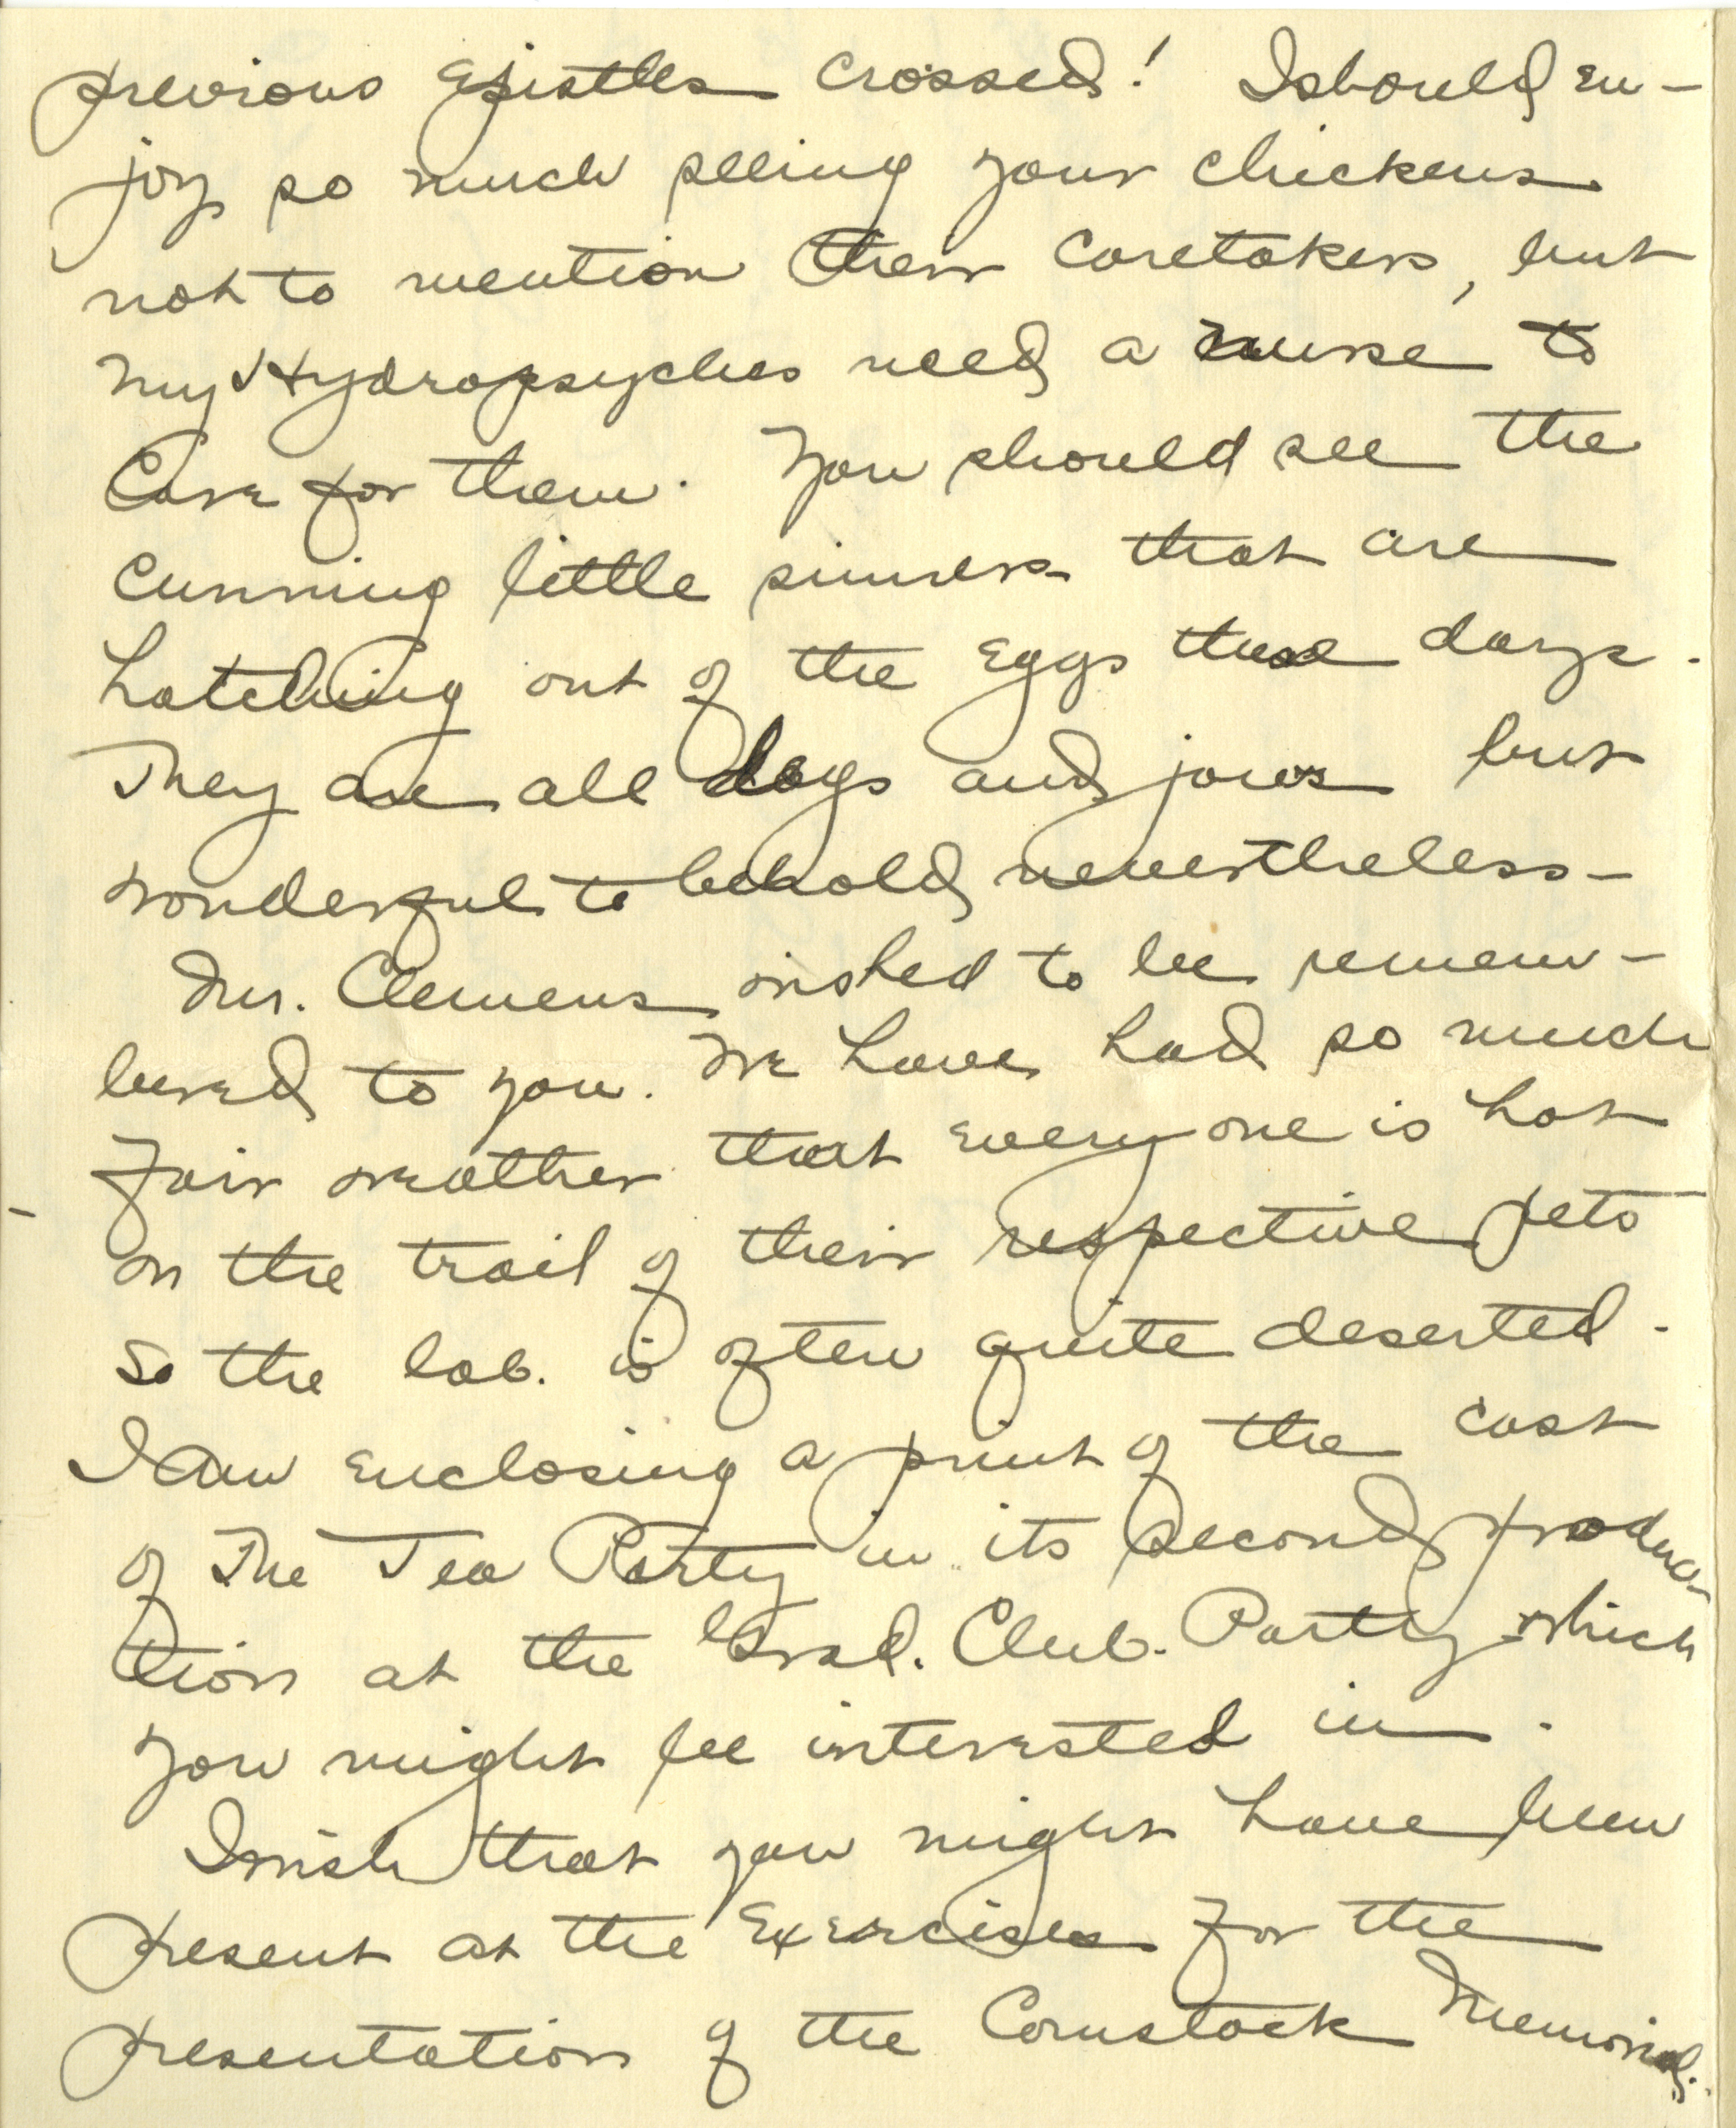 previous epistles crossed! I should en-
joy so much seeing your chickens
not to mention their caretakers, but
my Hydropsyches need a nurse to
care for them. You should see the
cunning little sinners that are
hatching out of the eggs these days.
They are all legs and jaws but
wonderful to behold nevertheless-
Mr. Clemens wished to be remem-
bered to you. We have had so much
fair weather that every one is hot
on the trail of their respective pets
so the lab. is often quite deserted.
I am enclosing a print of the cast
of The Tea Party in its second produc-
tion at the Grad. Club. Party which
you might be interested in.
I wish that you might have been
present at the Exercises for the
presentation of the Comstock Memorial.